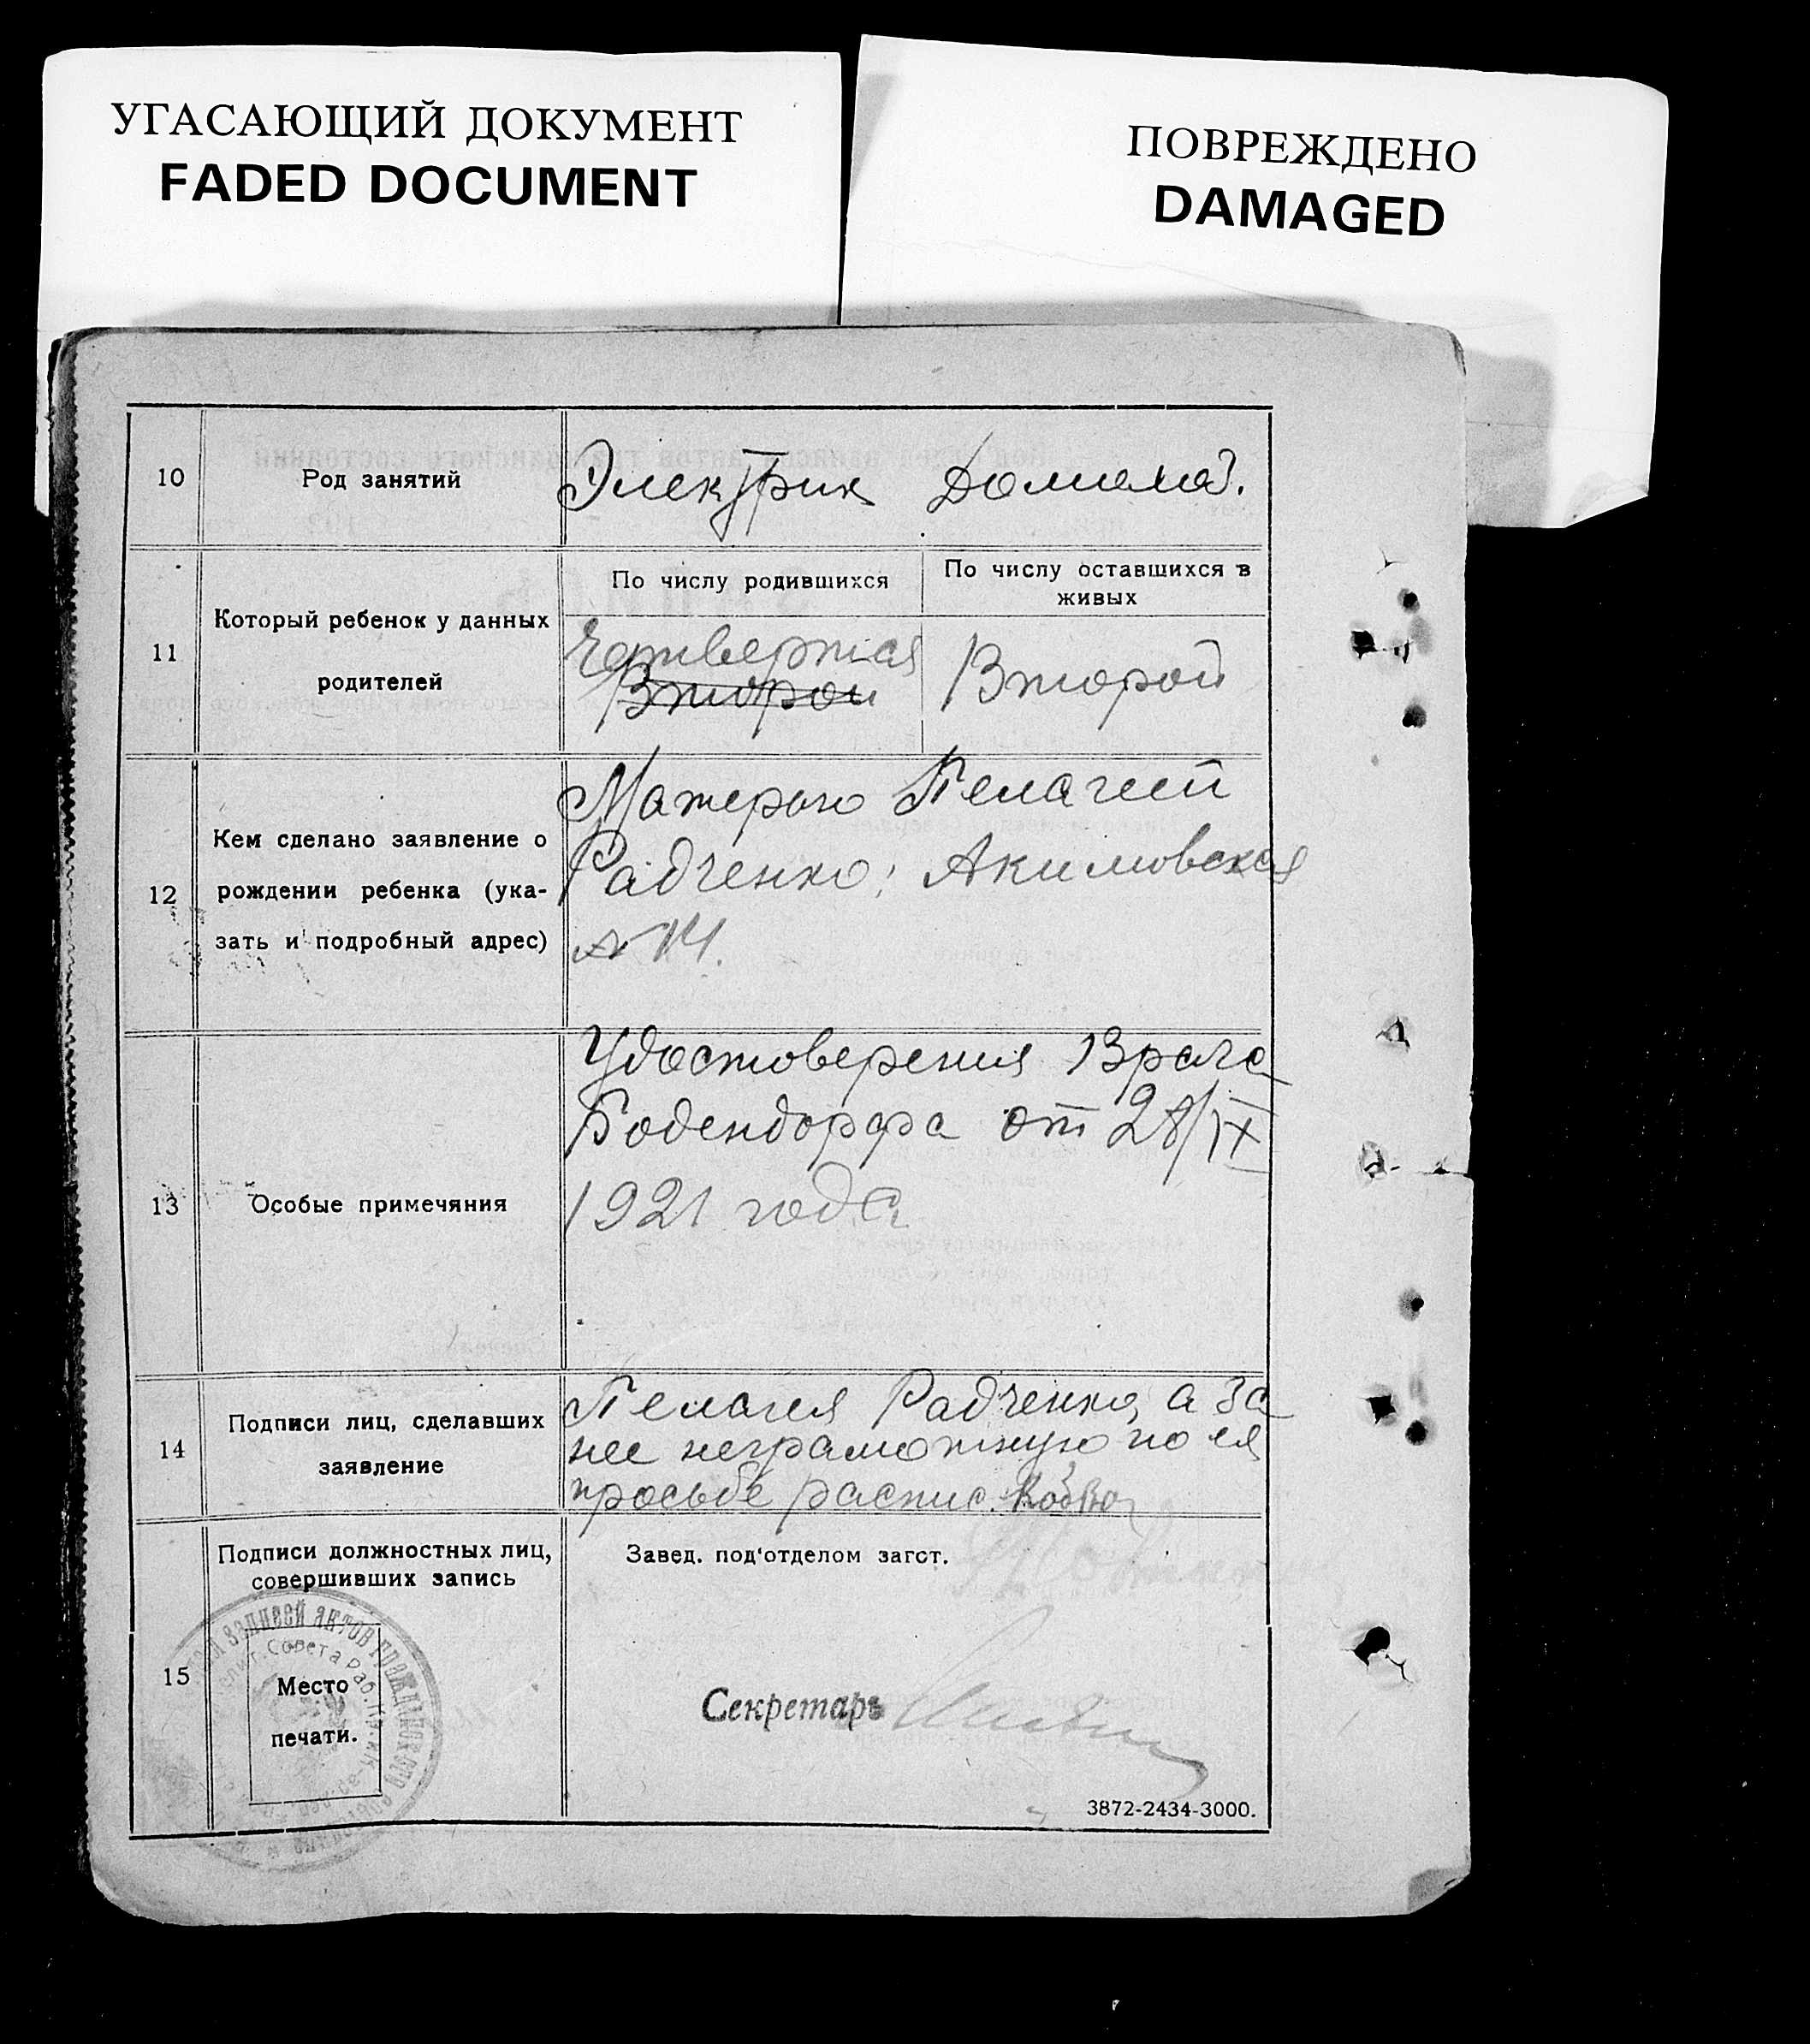 УГАСАЮЩИЙ ДОКУМЕНТ
FADED DOCUMENT
ПОВРЕЖДЕНО
DAMAGED
10
Род занятий
Электрик
Домохоз.
11
Который ребенок у данных
родителей
По числу родившихся
По числу оставшихся в
живых
Четвертая
Второй
Второй
12
Кем сделано заявление о
рождении ребенка (ука-
зать и подробный адрес)
Матерью Пелагией
Радченко; Акимовская
№ 14.
13
Особые примечяния
Удостоверения Врача
Бодендорфа от 28/IX
1921 года
14
Подписи лиц, сделавших
заявление
Пелагея Радченко, а за
нее неграмотную по ея
просьбе распис.
15
Подписи должностных лиц,
совершивших запись
Место
печати.
записей актов гражданского
Совета Раб.
Завед. под'отделом загст.
Секретарь
3872-2434-3000.